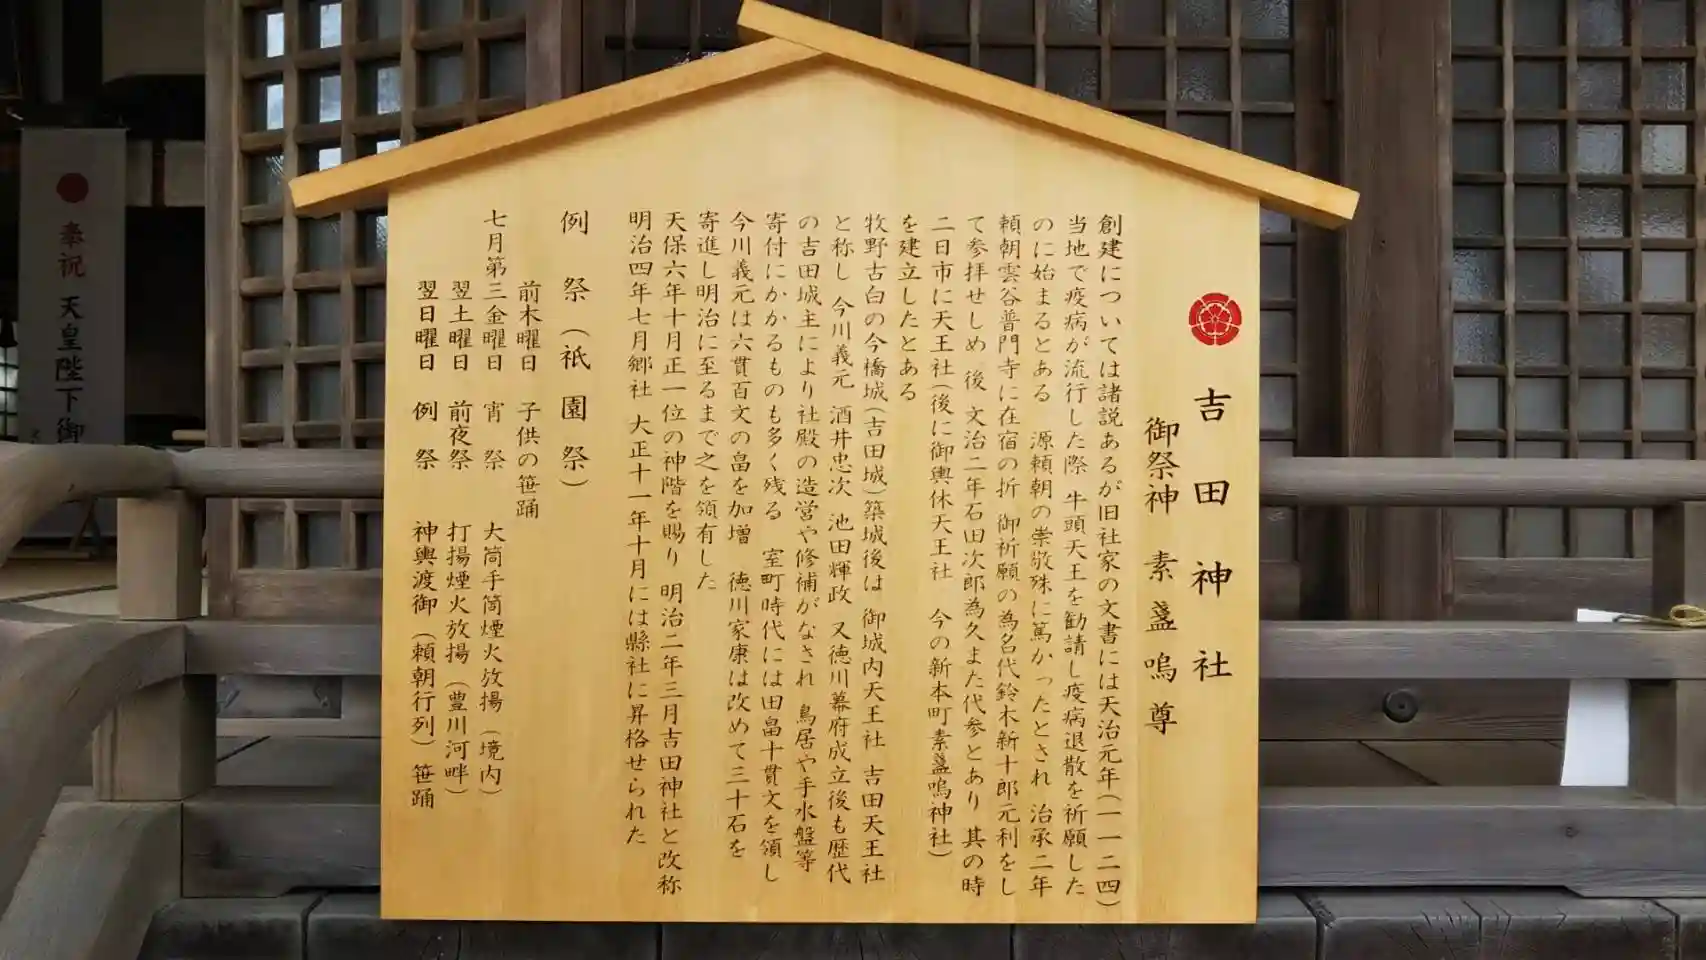 吉田神社
御祭神 素盞嗚尊
創建については諸説あるが旧社家の文書には天治元年(一一二四)
当地で疫病が流行した際 牛頭天王を勧請し疫病退散を祈願した
のに始まるとある 源頼朝の崇敬殊に篤かったとされ 治承二年
頼朝雲谷普門寺に在宿の折 御祈願の為名代鈴木新十郎元利をし
て参拝せしめ 後 文治二年石田次郎為久また代参とあり 其の時
二日市に天王社(後に御輿休天王社 今の新本町素盞嗚神社)
を建立したとある
牧野古白の今橋城(吉田城)築城後は 御城内天王社 吉田天王社
と称し 今川義元 酒井忠次 池田輝政 又徳川幕府成立後も歴代
の吉田城主により社殿の造営や修補がなされ 鳥居や手水盤等
寄付にかかるものも多く残る 室町時代には田畠十貫文を領し
今川義元は六貫百文の畠を加増 徳川家康は改めて三十石を
寄進し明治に至るまで之を領有した
天保六年十月正一位の神階を賜り 明治二年三月吉田神社と改称
明治四年七月郷社 大正十一年十月には縣社に昇格せられた
例祭(祇園祭)
前木曜日 子供の笹踊
七月第三金曜日 宵祭 大筒手筒煙火放揚(境内)
翌土曜日 前夜祭 打揚煙火放揚(豊川河畔)
翌日曜日 例祭 神輿渡御(頼朝行列)笹踊
奉祝 天皇陛下御